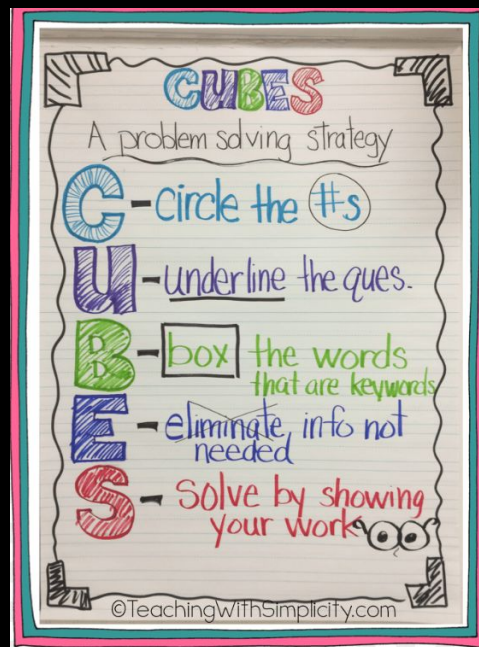 CUBES
A problem solving strategy
C - circle the #s
U - underline the ques.
B - box the words
that are keywords
E - eliminate info not
needed
S - Solve by showing
your work
©TeachingWithSimplicity.com